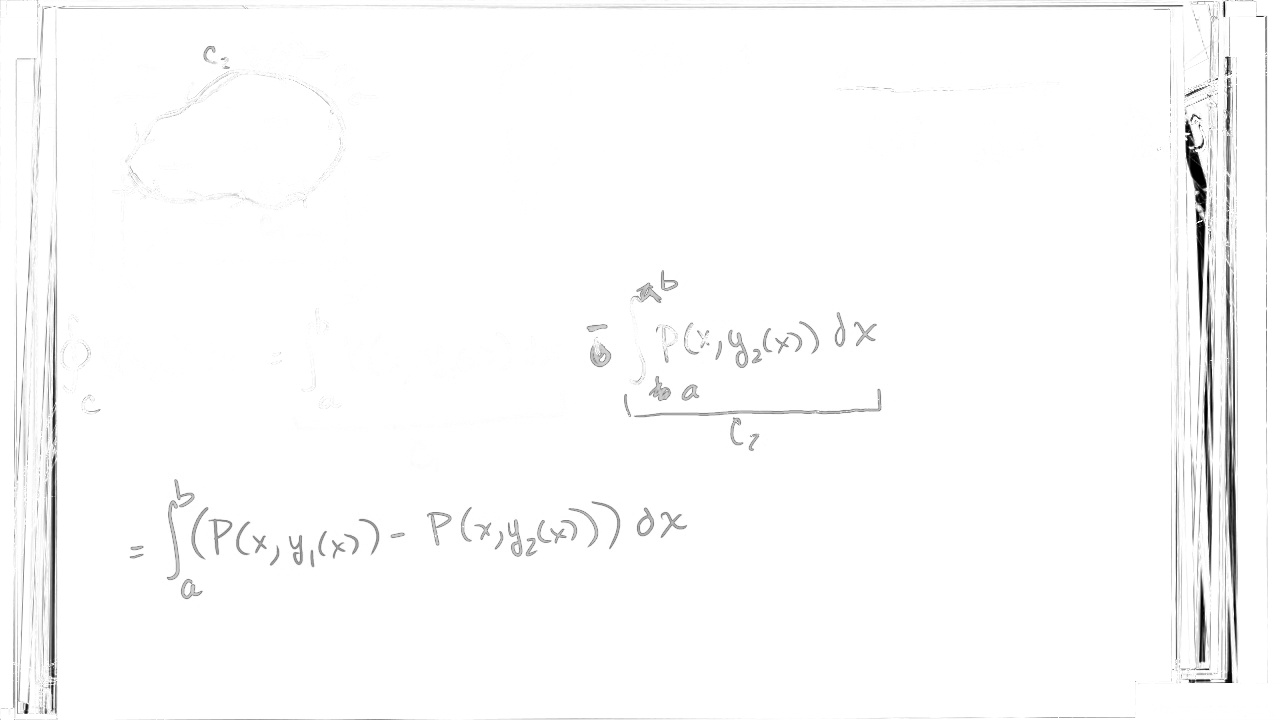 C₂
∮_C = ∫_a^b − ∫_a^b P(x, y₂(x)) dx
C₂
= ∫_a^b (P(x, y₁(x)) − P(x, y₂(x))) dx